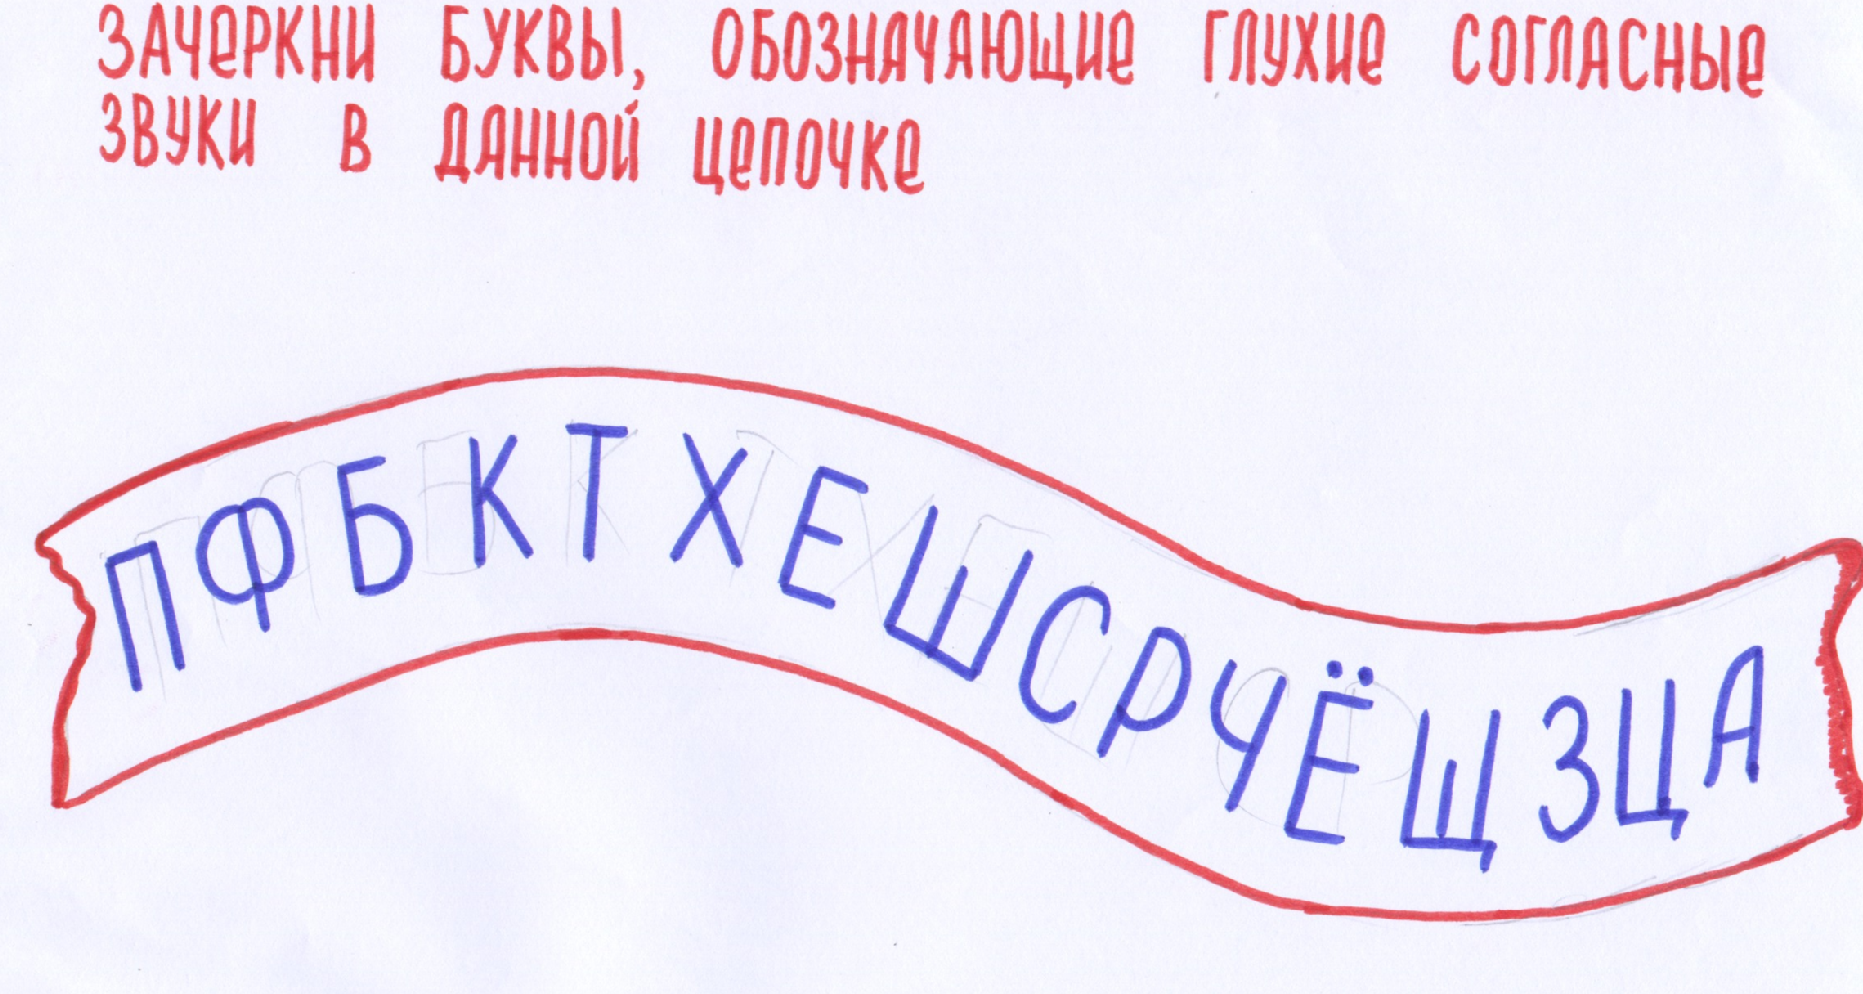 ЗАЧЕРКНИ БУКВЫ, ОБОЗНАЧАЮЩИЕ ГЛУХИЕ СОГЛАСНЫЕ
ЗВУКИ В ДАННОЙ ЦЕПОЧКЕ
ПФБКТХЕШСРЧЁЩЗЦА